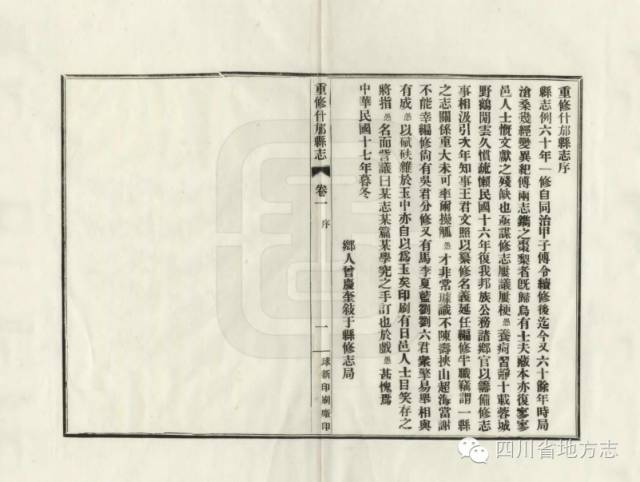 重修什邡縣志序
縣志例六十年一修自同治甲子傅令續修後迄今又六十餘年時局
滄桑幾經變異紀傅兩志鐫之棗梨者旣歸烏有士夫藏本亦復寥寥
邑人士慨文獻之殘缺也亟謀修志屢議屢梗愚養疴習靜十載蓉城
野鶴閒雲久慣疏懶民國十六年復我邦族公務諸鄉官以籌備修志
事相汲引次年知事王君文照以纂修名義延任編修半職竊謂一縣
之志關係重大未可率爾操觚愚才非常璩識不陳壽挾山超海當謝
不能幸編修尙有吳君分修又有馬李夏藍劉劉六君衆擎易舉相與
有成愚以碔砆雜於玉中亦自以爲玉矣印刷有日邑人士目笑存之
將指愚名而訾議曰某志某篇某學究之手訂也於戲愚甚愧焉
中華民國十七年暮冬
鄉人曾慶奎敍于縣修志局
重修什邡縣志
卷一
序
一
球新印刷廠印
四川省地方志